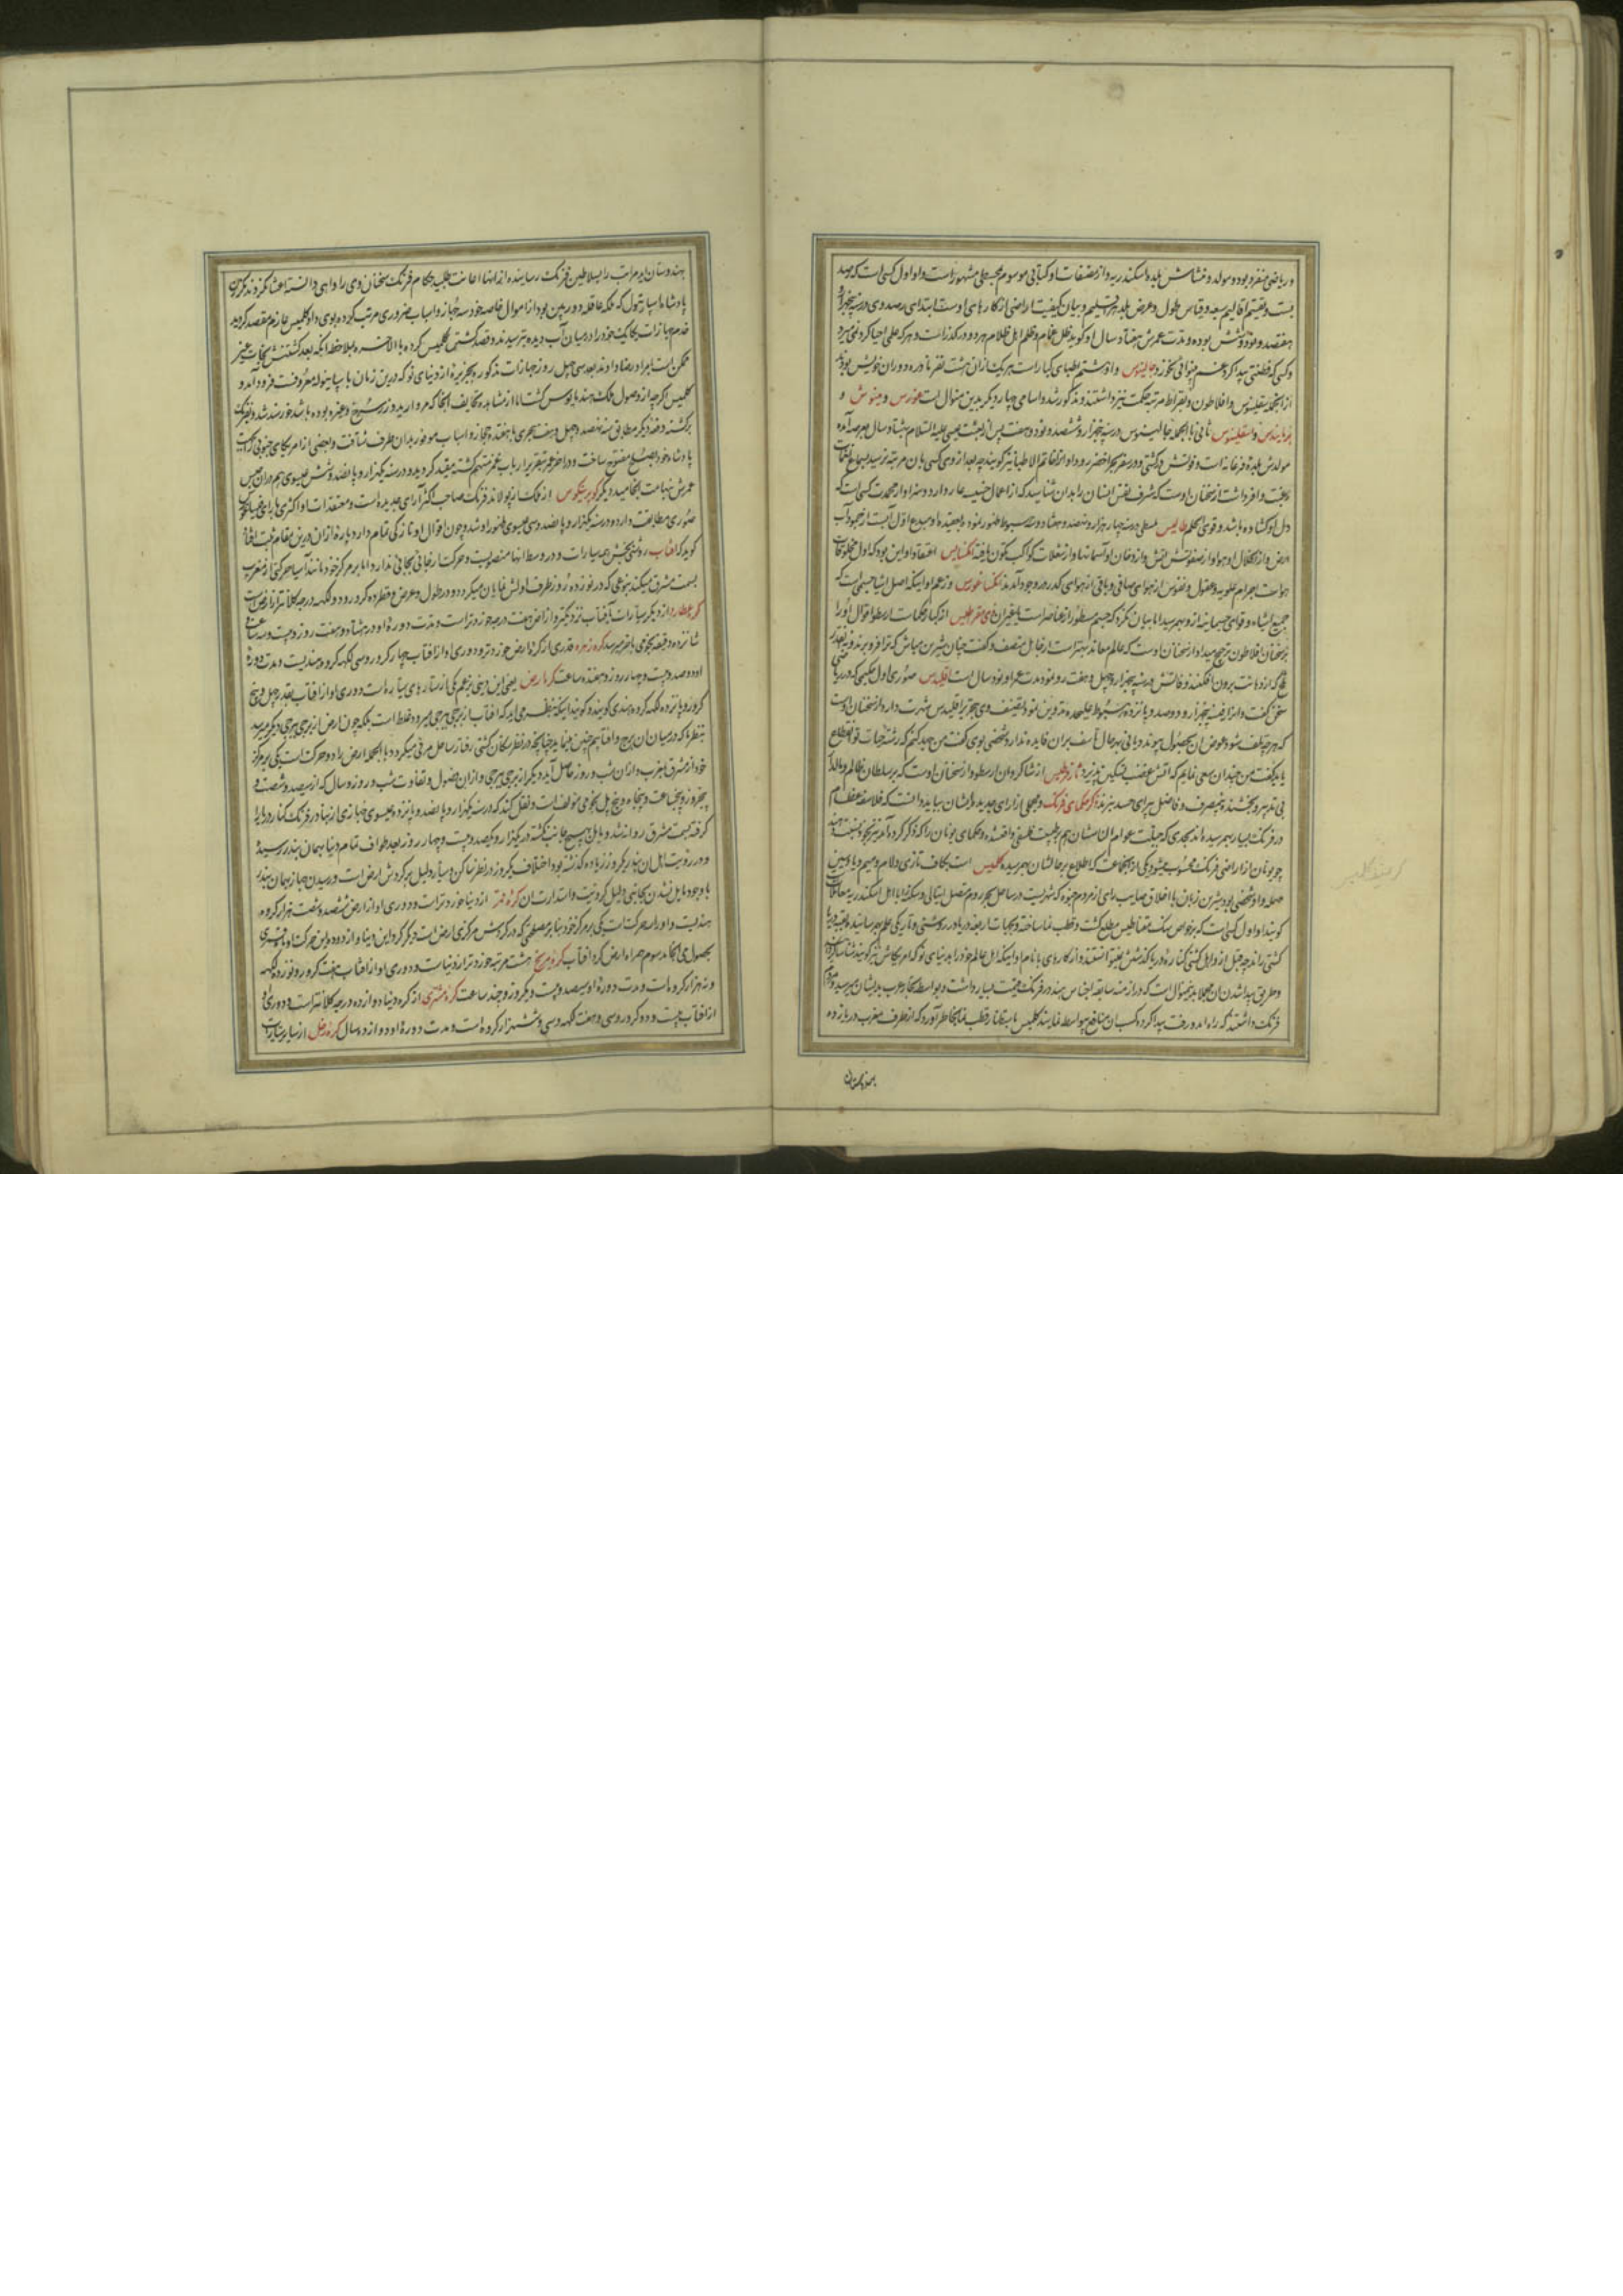 در ریاضی متفرد بوده مولد و منشاش بلده اسکندریه و از مصنفات او کتابی موسوم بمجسطی مشهور است و او اول کسی است که رصد
بست و تقسیم اقالیم سبعه و قیاس طول و عرض بلد هر اقلیم و بیان کیفیت اراضی از کارهای اوست ابتدای رصد وی در سنه پنجهزار و
هفتصد و نود و شش بوده و مدت عمرش هفتاد سال او کوید ظل غمام و ظلم اهل ظلام هر دو در گذر است و هر که علمی احیا کرد نمی میرد
و کسی که فطنتی پیدا کرد غم نمیخورد جالینوس و او هشتم اطبای کبار است هر یک از ان هشت نفر نادره دوران خویش بودند
از انجمله سقلینوس و افلاطون و بقراط مرتبه حکمت نیز داشتند و مذکور شد و اسامی چهار دیگر بدین منوال است غورس و مینوش و
برمانیدس و اسقلینوس ثانی بالجمله جالینوس در سنه پنجهزار و ششصد و نود و هفت پس از بعثت عیسی علیه السلام بهشتاد سال بعرصه آمده
مولدش بلده فرغانه است و فوتش در کشتی و در سفر بحر اخضر رو داد او را خاتم الاطبا نیز کویند چه بعد از وی کسی بان مرتبه نرسید
رغبت وافر داشت از سخنان اوست که شرف نفس انسان را بدان شناسید که از اعمال خسیسه عار دارد و سزاوار محمدت کسی است که
دل او کشاده باشد و قوی الحلم طالیس ملطی در سنه چهار هزار و نهصد و هشتاد و سه هبوط ظهور نمود و بعقیده او مبدع اول آبست از جمود آب
ارض و از انحلال او هوا و از صفوتش آتش و از دخان او آسمانها و از شعلات کواکب تکون یافته انکسیمایس اعتقاد او این بود که اول مخلوقات
هواست اجرام علویه و عقول و نفوس از هوای صافی و باقی از هوای کدر در وجود آمدند انکساغورس و زعم او اینکه اصل اشیا جسمی است که
جمیع اشیاء و قوای جسمانیه ازو بهم رسید اما بیان نکرد که جسم مسطور از عناصر است یا غیر ان ذیمقراطیس از کبار حکماست ارسطو اقوال او را
بر سخنان افلاطون ترجیح میداد از سخنان اوست که عالم معاند بهتر است از جاهل منصف و کفت چنان شیرین مباش که ترا فرو برند و نه چندان
تلخ که از دهانت برون افکنند وفاتش در سنه پنجهزار و چهل و هفت رو نمود مدت عمر او نود سال است اقلیدس صوری اول حکیمی که در ریاضی
سخن کفت و از اول سنه پنجهزار و دوصد و پانزده هبوط علیحده تدوین نمود تصنیف وی بتحریر اقلیدس شهرت دارد از سخنان اوست
که هر چه تلف شود عوض ان بحصول پیوندد یا نی بهر حال تاسف بر ان فایده ندارد شخصی بوی کفت من جهد کنم که رشته حیات تو انقطاع
یابد کفت من چندان سعی نمایم که اتش غضب تسکین پذیرد ثاوفرطیس از شاکردان ارسطو و از سخنان اوست که بر سلطان ظالم و والد
بی تدبیر و بخشنده متصرف و فاضل بیرای حسد نبرند ذکر حکمای فرنک و مجملی از رای جدیده ایشان بباید دانست که فلاسفه عظام
در فرنک بسیار بهم رسیده اند بحدی که جبلت عوام الناسشان هم بطبیعت فلسفی واقعشده و حکمای یونان را که ذکر کرده آمد نیز بجهت
چو یونان از اراضی فرنک محسوب میشود یکی از انجماعت که اطلاع بر حالشان بهم رسیده کلمبس است بکاف تازی و لام و میم و با و سین
مهمله و او شخصی بود شیرین زبان با اخلاق صایب رای از مردم جنوه که شهریست در ساحل بحر روم متصل ایتالی
کویند او اول کسی است که بر خواص سنک مقناطیس مطلع کشت و قطب نما ساخته
کشتی راند چه قبل ازو اهل کشتی کناره دریا کذشتن نمیتوانستند و از کارهای با نام او اینکه اهل عالم خود را بدنیای نو که امریکاش نیز کویند شناسا کرد
و طریق پیدا شدن ان مجملا بدینمنوال است که در ازمنه سابقه اجناس هند در فرنک قیمت بسیار داشت و بواسطه تجار عرب بدیشان میرسید
فرنک داشتند که راه امد و رفت پیدا کرده کسب ان منافع بیواسطه نمایند کلمبس باستظهار قطب نما بخاطر آورد که از طرف مغرب در یازده
هندوستان
هندوستان این مراتب را بسلاطین فرنک رسانیده از انها اعانت طلبید حکام فرنک سخنان وی را واهی دانسته اعتنا نکردند
پادشاه اسپانیول که ملکه عاقله دوربین بود از اموال خاصه خود سه جهاز و اسباب ضروری مرتب کرده بوی داد کلمبس عازم مقصد کردید
خدم جهازات یکایک خود را در میان آب دیده ترسیدند و قصد کشتن کلمبس کرده بالاخره بملاحظه انکه بعد کشتنش نجات غیر
ممکن است بامر او رضا دادند بعد سی چهل روز جهازات مذکور بجزیره از دنیای نو که درین زمان باسپانیوله معروفست فرود آمد و
کلمبس اگرچه از وصول ملک هند مایوس کشت اما از مشاهده تحایف انجا که مروارید و زر سرخ و غیره بوده باشد خورسند شد و بفرنک
برکشته دفعه دیگر مطابق سنه نهصد و چهل و هفت هجری با هفده جهاز و اسباب موفور بدان طرف شتافت و بعضی از امریکای جنوبی را بجهت
پادشاه خود بصلح مفتوح ساخت و در اخر عمر بتقریر ارباب غرض متهم کشته مقید کردید و در سنه یکهزار و پانصد و شش عیسوی هم در ان حبس
عمرش بنهایت انجامید دیکر کوپرنیکوس از ملک پولاند فرنک صاحب اکثر آرای جدیده است و معتقدات او اکثری با رای فیثاغورس
صوری مطابقت دارد و در سنه یکهزار و پانصد و سی عیسوی ظهور او شد و چون اقوال او تازکی تمام دارد پاره از ان درین مقام ثبت افتاد
کوید که افتاب روشنی بخش همه سیارات و در وسط انها منصوبست و حرکت از جائی بجائی ندارد اما بر مرکز خود مانند آسیا حرکتی از مغرب
بسمت مشرق میکند بنوعی که در نوزده روز طرف اولش نمایان میکردد و در طول و عرض و قطر ده کرور و دو لکهه درجه کلانتر از ارض است
کره عطارد از دیگر سیارات بآفتاب نزدیکتر و از ارض هفت درجه خوردتر است و مدت دوره او در هشتاد و هفت روز و بیست و سه ساعت
شانزده دقیقه نجومی باخر میرسد کره زهره قدری از کره ارض خوردتر و دوری او از افتاب چهار کرور و سی لکهه کروه هندیست و مدت دوره
او دو صد و بیست و چهار روز و هفده ساعت کره ارض یعنی این زمین بزعم یکی از ستاره های سیاره است و دوری او از افتاب بقدر چهل و پنج
کرور و پانزده لکهه کروه هندی کویند و کویند اینکه بنظر می اید که افتاب از برجی ببرجی میرود غلط است بلکه چون ارض از برجی ببرجی دیگر میرسد
بنظر ما که در میان ان برج و افتابیم چنین مینماید چنانچه در نظر سکان کشتی رفتار ساحل مرئی میکردد بالجمله ارض را دو حرکت است یکی بر مرکز
خود از مشرق بمغرب و از ان شب و روز حاصل آید دیگر از برجی ببرجی و از ان فصول و تفاوت شب و روز و سال که از سیصد و شصت و
پنجروز و پنجساعت و پنجاه و پنج پل نجومی مولف است و نقل کنند که در سنه یکهزار و پانصد و پانزده عیسوی جهازی از بنادر فرنک کناره دریا
کرفته بسمت مشرق روانه شد و مایل بهیچ جانب نکشته در یکهزار و یکصد و بیست و چهار روز بعد طواف تمام دنیا بهمان بندر رسید
و در رویت اهل ان بندر یکروز زیاده کذشته بود اختلاف یکروز در نظر ساکن و سیار دلیل بر کردش ارض است و رسیدن جهاز بهمان بندر
با وجود مایل نشدن بجانبی دلیل کرویت و استدارت ان کره قمر از دنیا خوردتر است و دوری او از ارض ششصد و شصت هزار کروه
هندیست و او را سه حرکت است یکی بر مرکز خود بنا بر مصلحتی که در کردش مرکزی ارض است دیگر کرد این دنیا
بحصول می انجامد سوم همراه ارض کرد افتاب کره مریخ هشت مرتبه خوردتر از دنیاست و دوری او از افتاب هفت کرور و نوزده لکهه
و نه هزار کروه است و مدت دوره او سیصد و بیست و یکروز و چند ساعت کره مشتری از کره دنیا دوازده درجه کلانتر است و دوری او
از افتاب بیست و دو کرور و سی و هفت لکهه و سی و شش هزار کروه است و مدت دوره او دوازده سال کره زحل از سایر سیارات